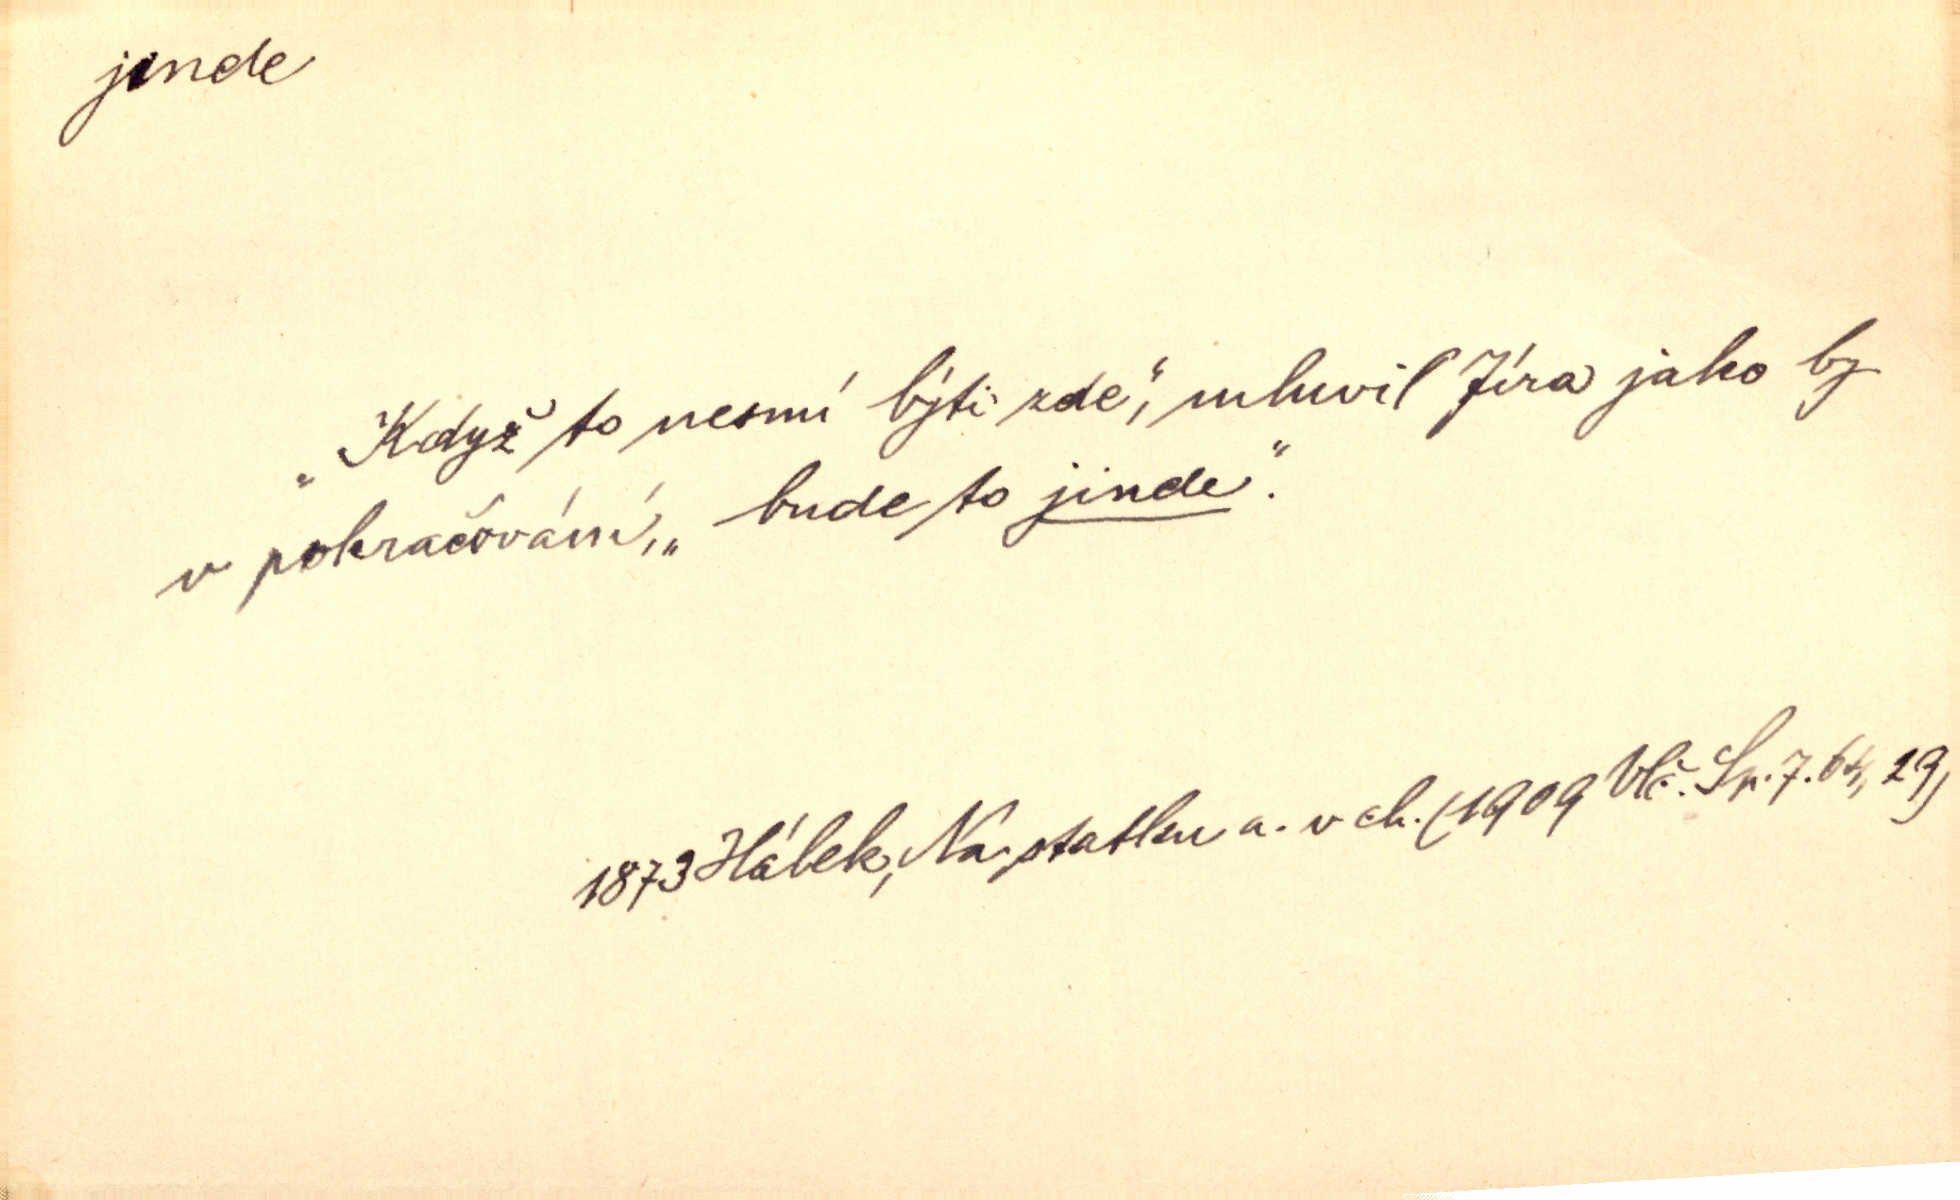 jinde
„Když to nesmí býti zde“, mluvil Jíra jako by
v pokračování, „bude to jinde“.
1873 Hálek, Na statku a. v ch. (1909 Vlč. Sp. 7. 64, 29)